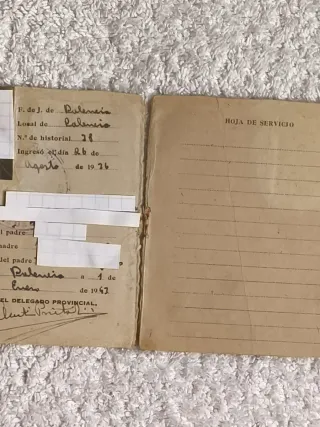 F. de J. de Palencia
Local de Palencia
N.º de historial 28
Ingresó el día 26 de
Agosto de 1936
el padre
madre
del padre
Palencia a 1 de
Enero de 1942
EL DELEGADO PROVINCIAL,
HOJA DE SERVICIO